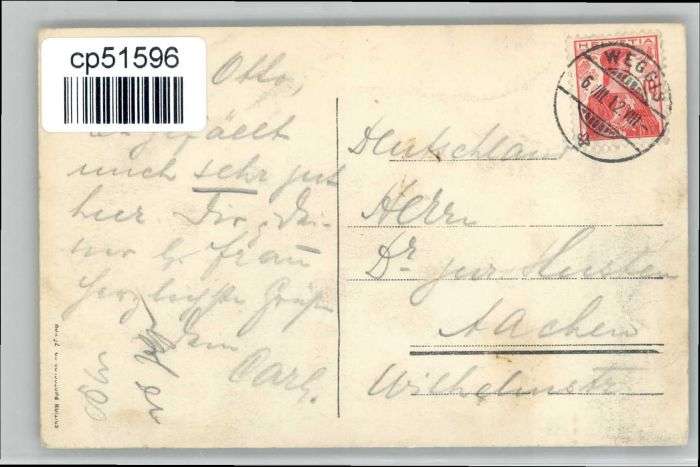 cp51596
Otto,
gefällt
mich sehr gut
hier. Dir, Dei-
ner l. Frau
herzlichste Grüße
Dein
Carl.
HELVETIA
WEGGIS
6. III. 12. VIII
Deutschland
Herrn
Dr jur
Aachen
Wilhelmstr